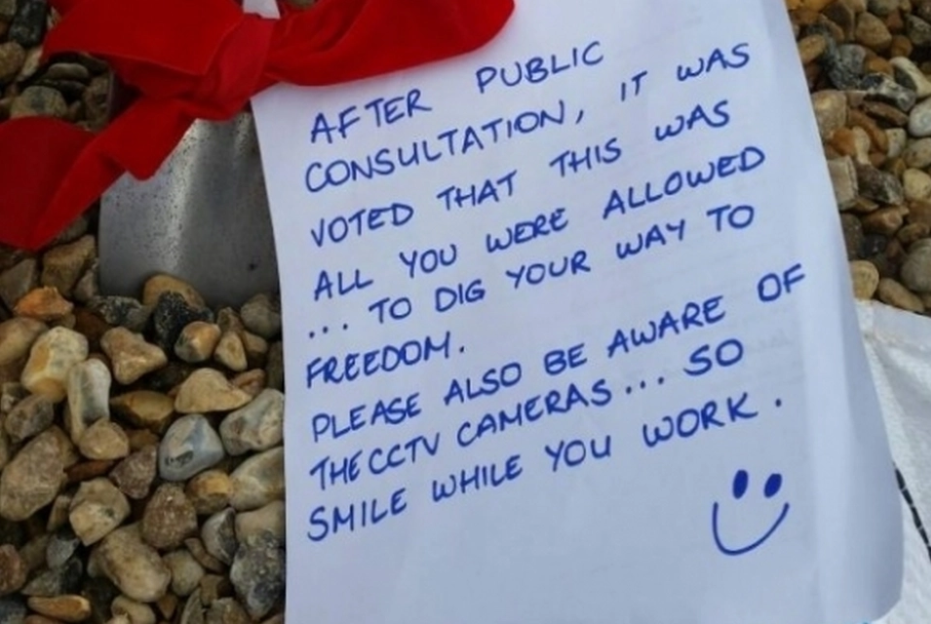 AFTER PUBLIC
CONSULTATION, IT WAS
VOTED THAT THIS WAS
ALL YOU WERE ALLOWED
... TO DIG YOUR WAY TO
FREEDOM.
PLEASE ALSO BE AWARE OF
THE CCTV CAMERAS... SO
SMILE WHILE YOU WORK.